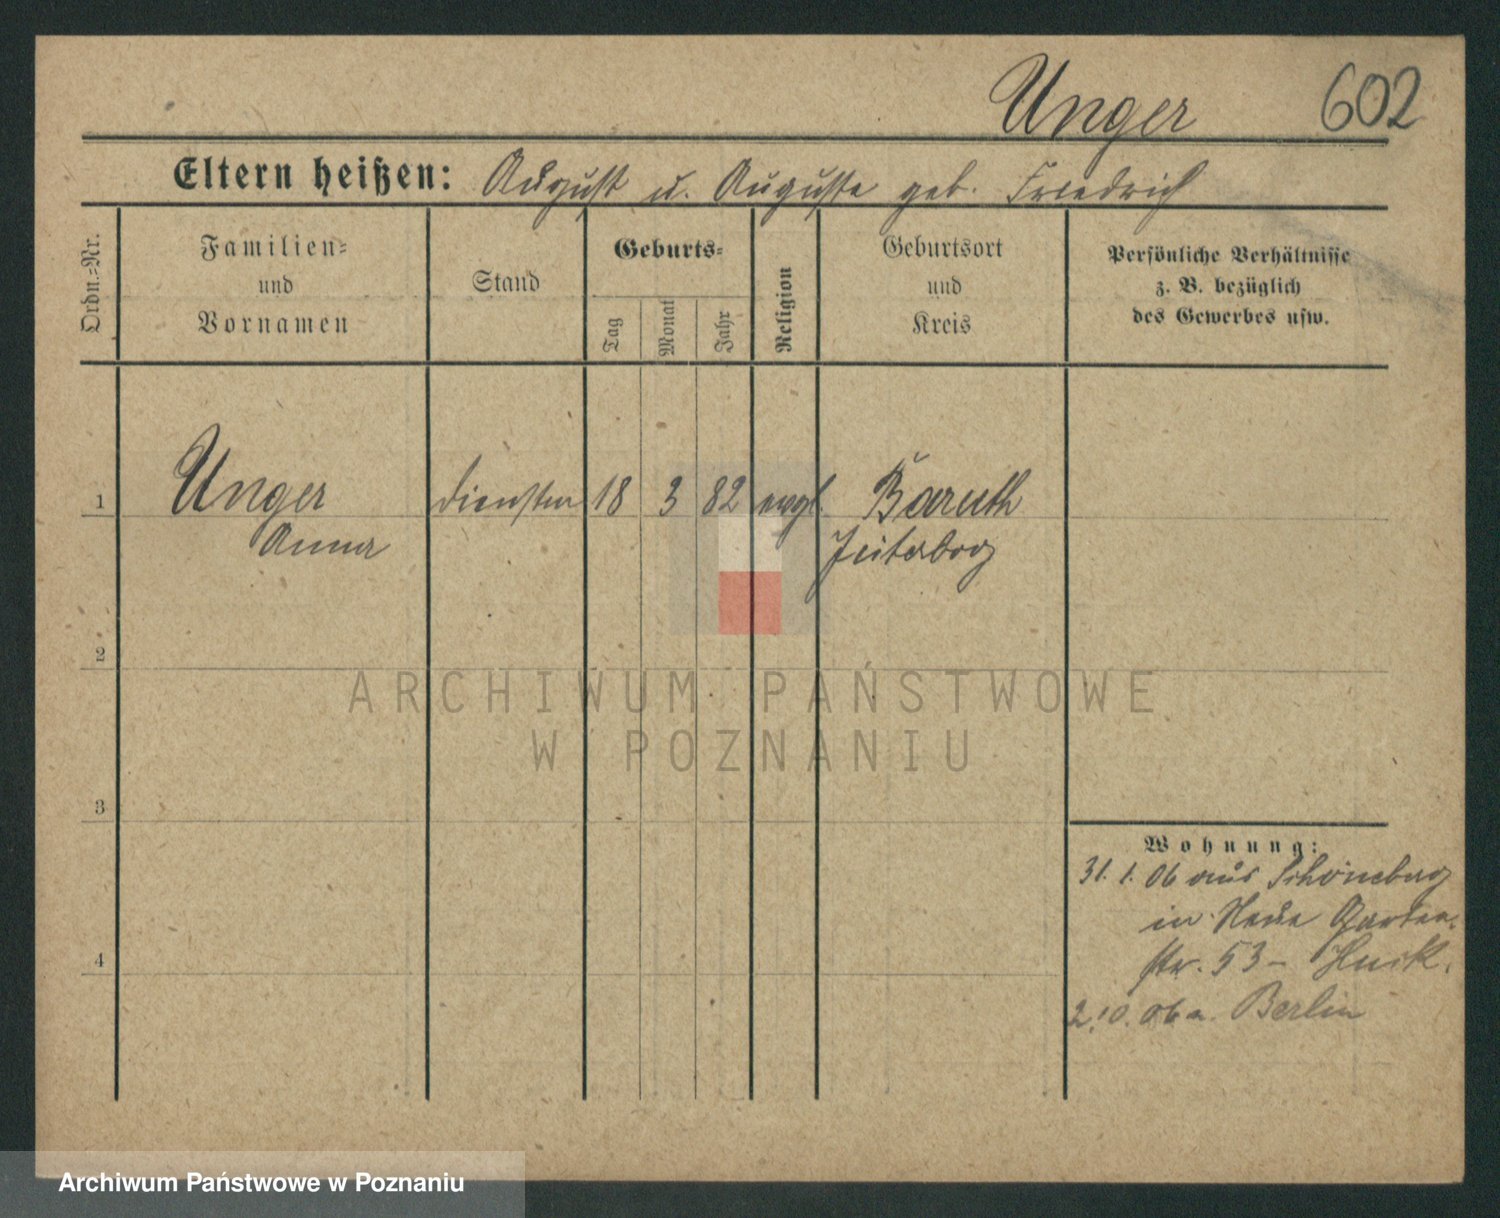 Unger 602
Eltern heißen: August u. Auguste geb. Friedrich
Ordn.=Nr.
Familien=
und
Vornamen
Stand
Geburts=
Tag
Monat
Jahr
Religion
Geburtsort
und
Kreis
Persönliche Verhältnisse
z. B. bezüglich
des Gewerbes usw.
1 Unger 18 3 82 evgl. Baruth
Anna Jüterbog
2
ARCHIWUM PAŃSTWOWE
W POZNANIU
3
Wohnung:
31. 1. 06 aus Schöneberg
in Neue Garten-
str. 53 -
4
2.10.06 a. Berlin
Archiwum Państwowe w Poznaniu